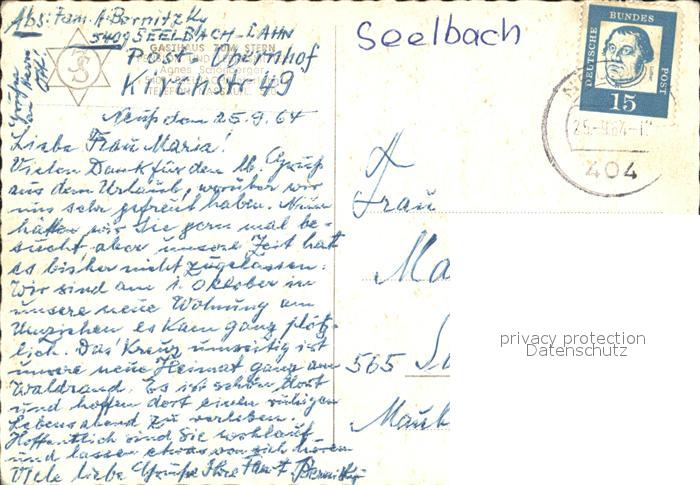 Abs: Fam. A. Bernitzky
5409 SEELBACH-LAHN
Post Obernhof
Kirchstr 49
GASTHAUS ZUM STERN
Seelbach
DEUTSCHE BUNDESPOST
15
25.-9.64-1
404
Neuß den 25.9.64
Liebe Frau Maria!
Vielen Dank für den lb. Gruß
aus dem Urlaub, worüber wir
uns sehr gefreut haben. Nun
hätten wir Sie gern mal be-
sucht, aber unsere Zeit hat
es bisher nicht zugelassen.
Wir sind am 1. Oktober in
unsere neue Wohnung am
Umziehen es kam ganz plötz-
lich. Das Kreuz umseitig ist
unsere neue Heimat ganz am
Waldrand. Es ist schön dort
und hoffen dort einen ruhigen
Lebensabend zu verleben.
Hoffentlich sind Sie wohlauf
und lassen etwas von sich hören
Viele liebe Grüße Ihre Fam. A. Bernitzky
Frau
Ma
565
Mauh
privacy protection
Datenschutz